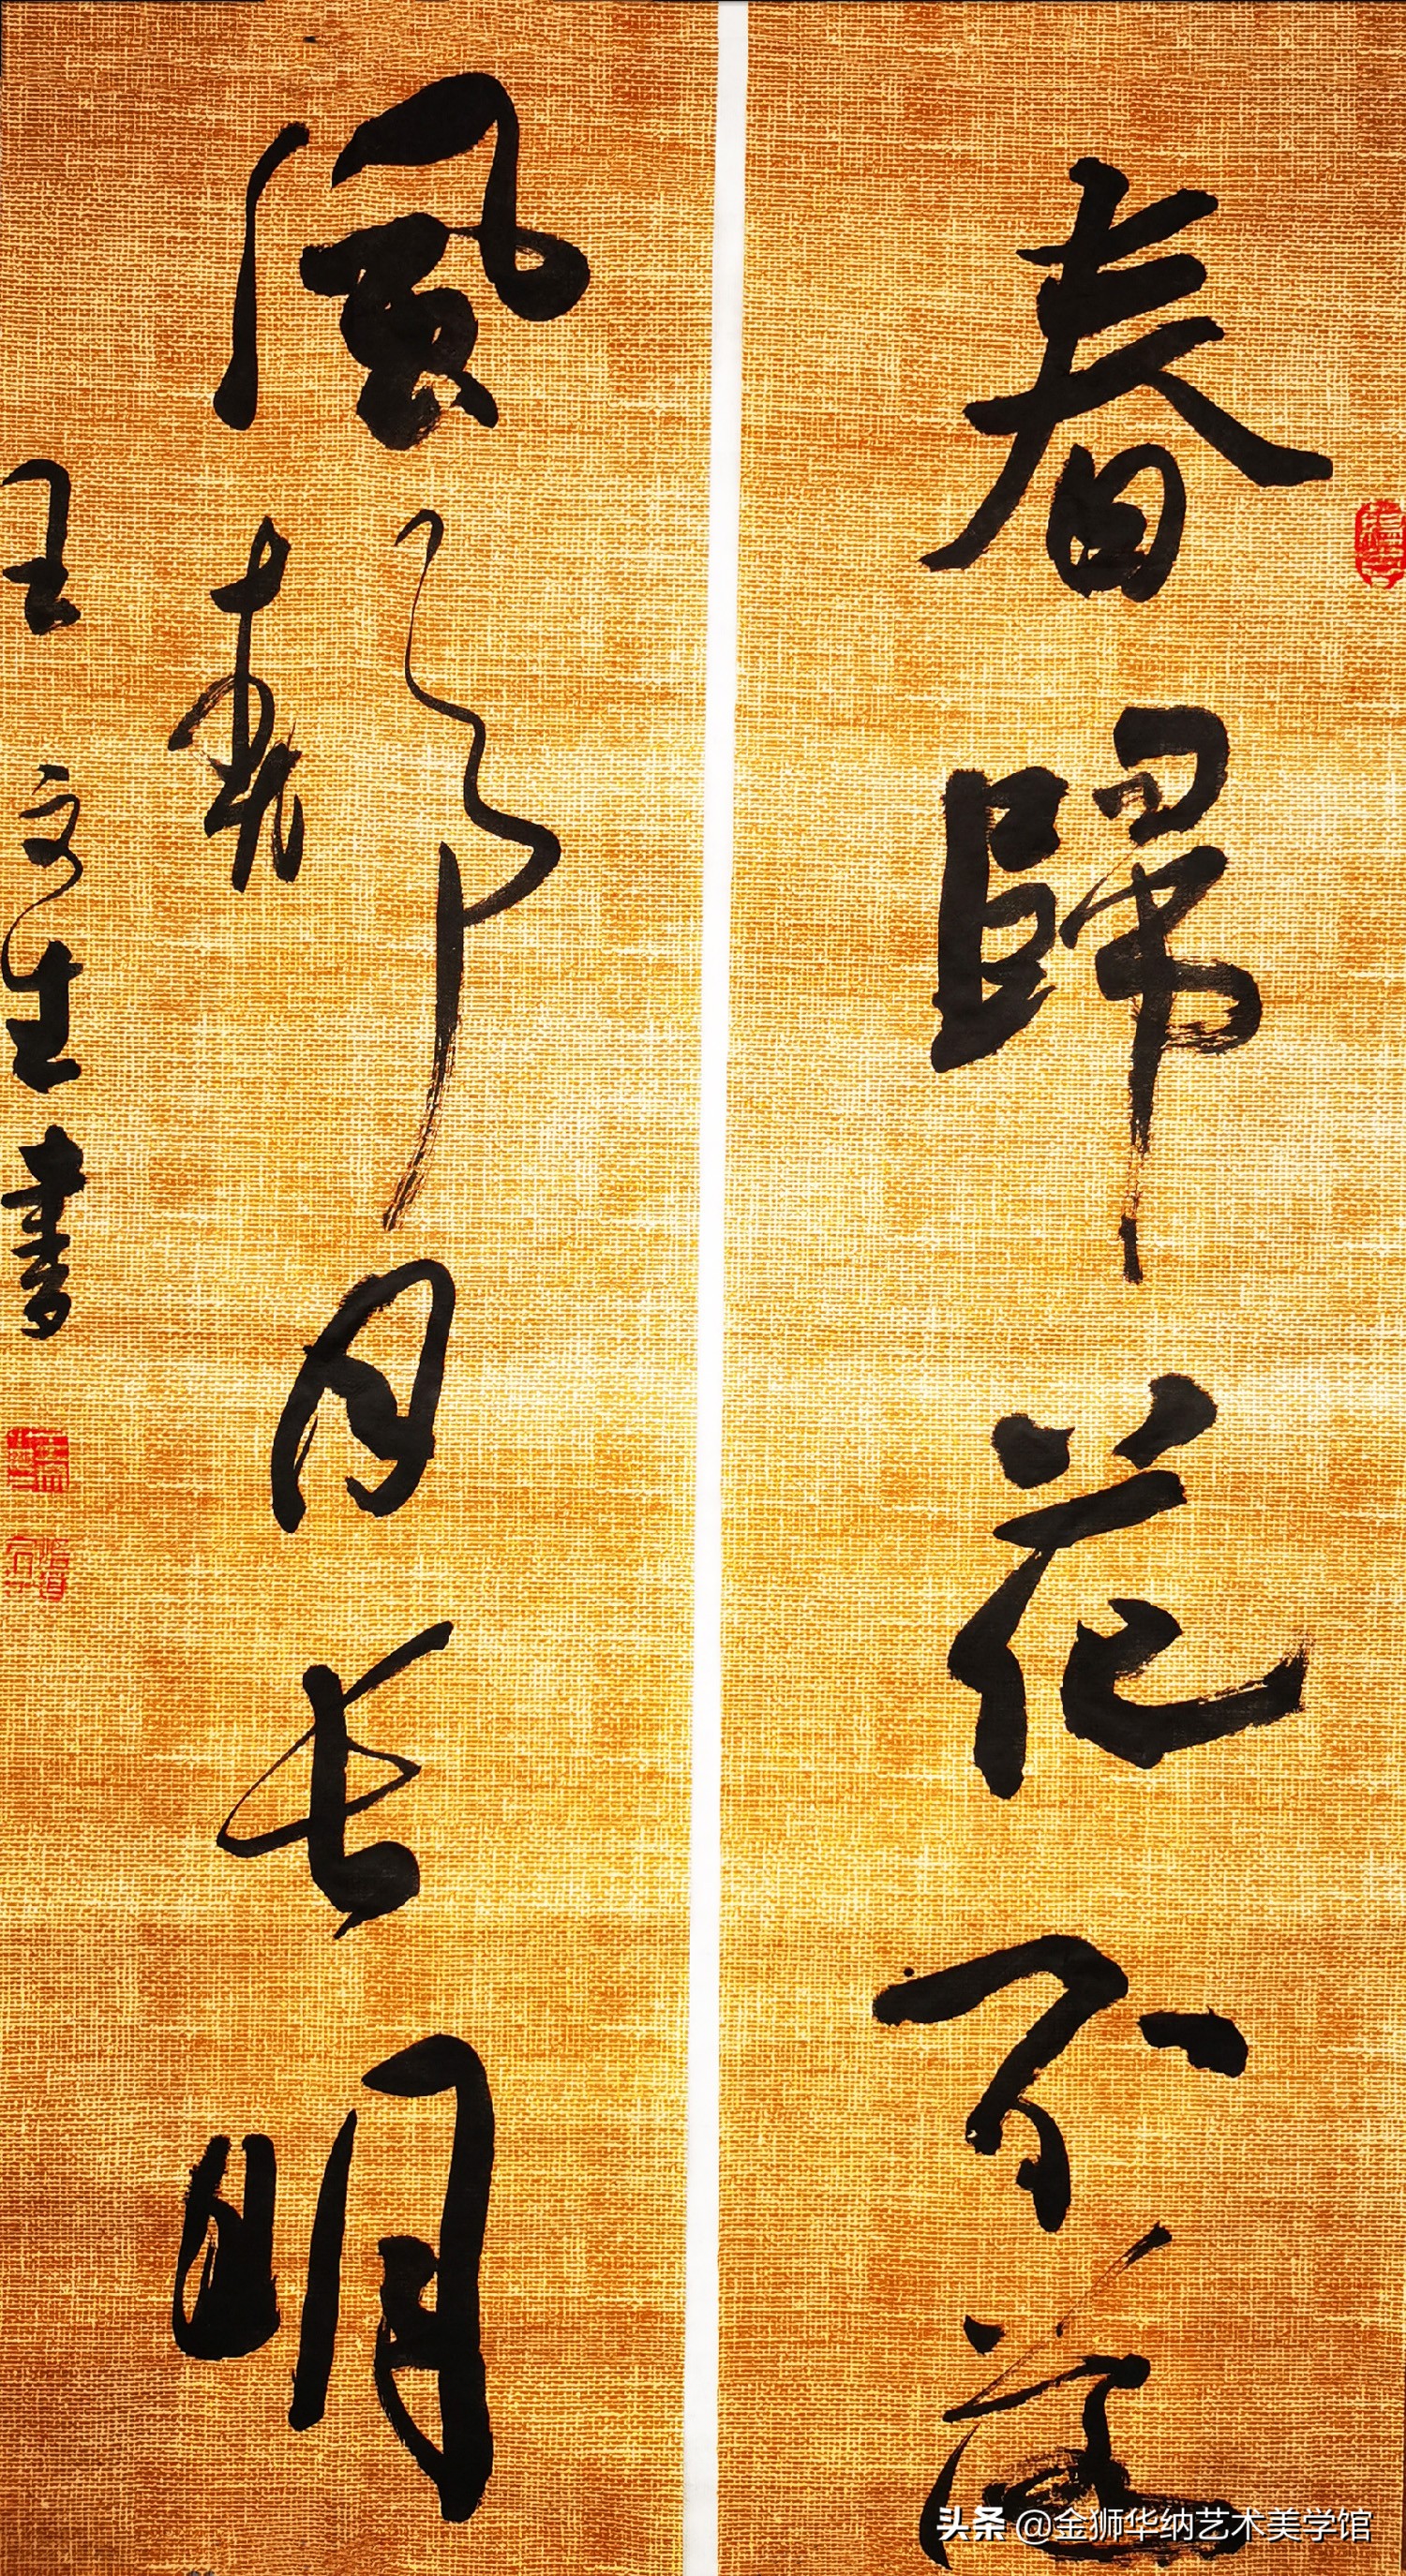 春歸花不落
風靜月長明
王文生書
头条 @金狮华纳艺术美学馆